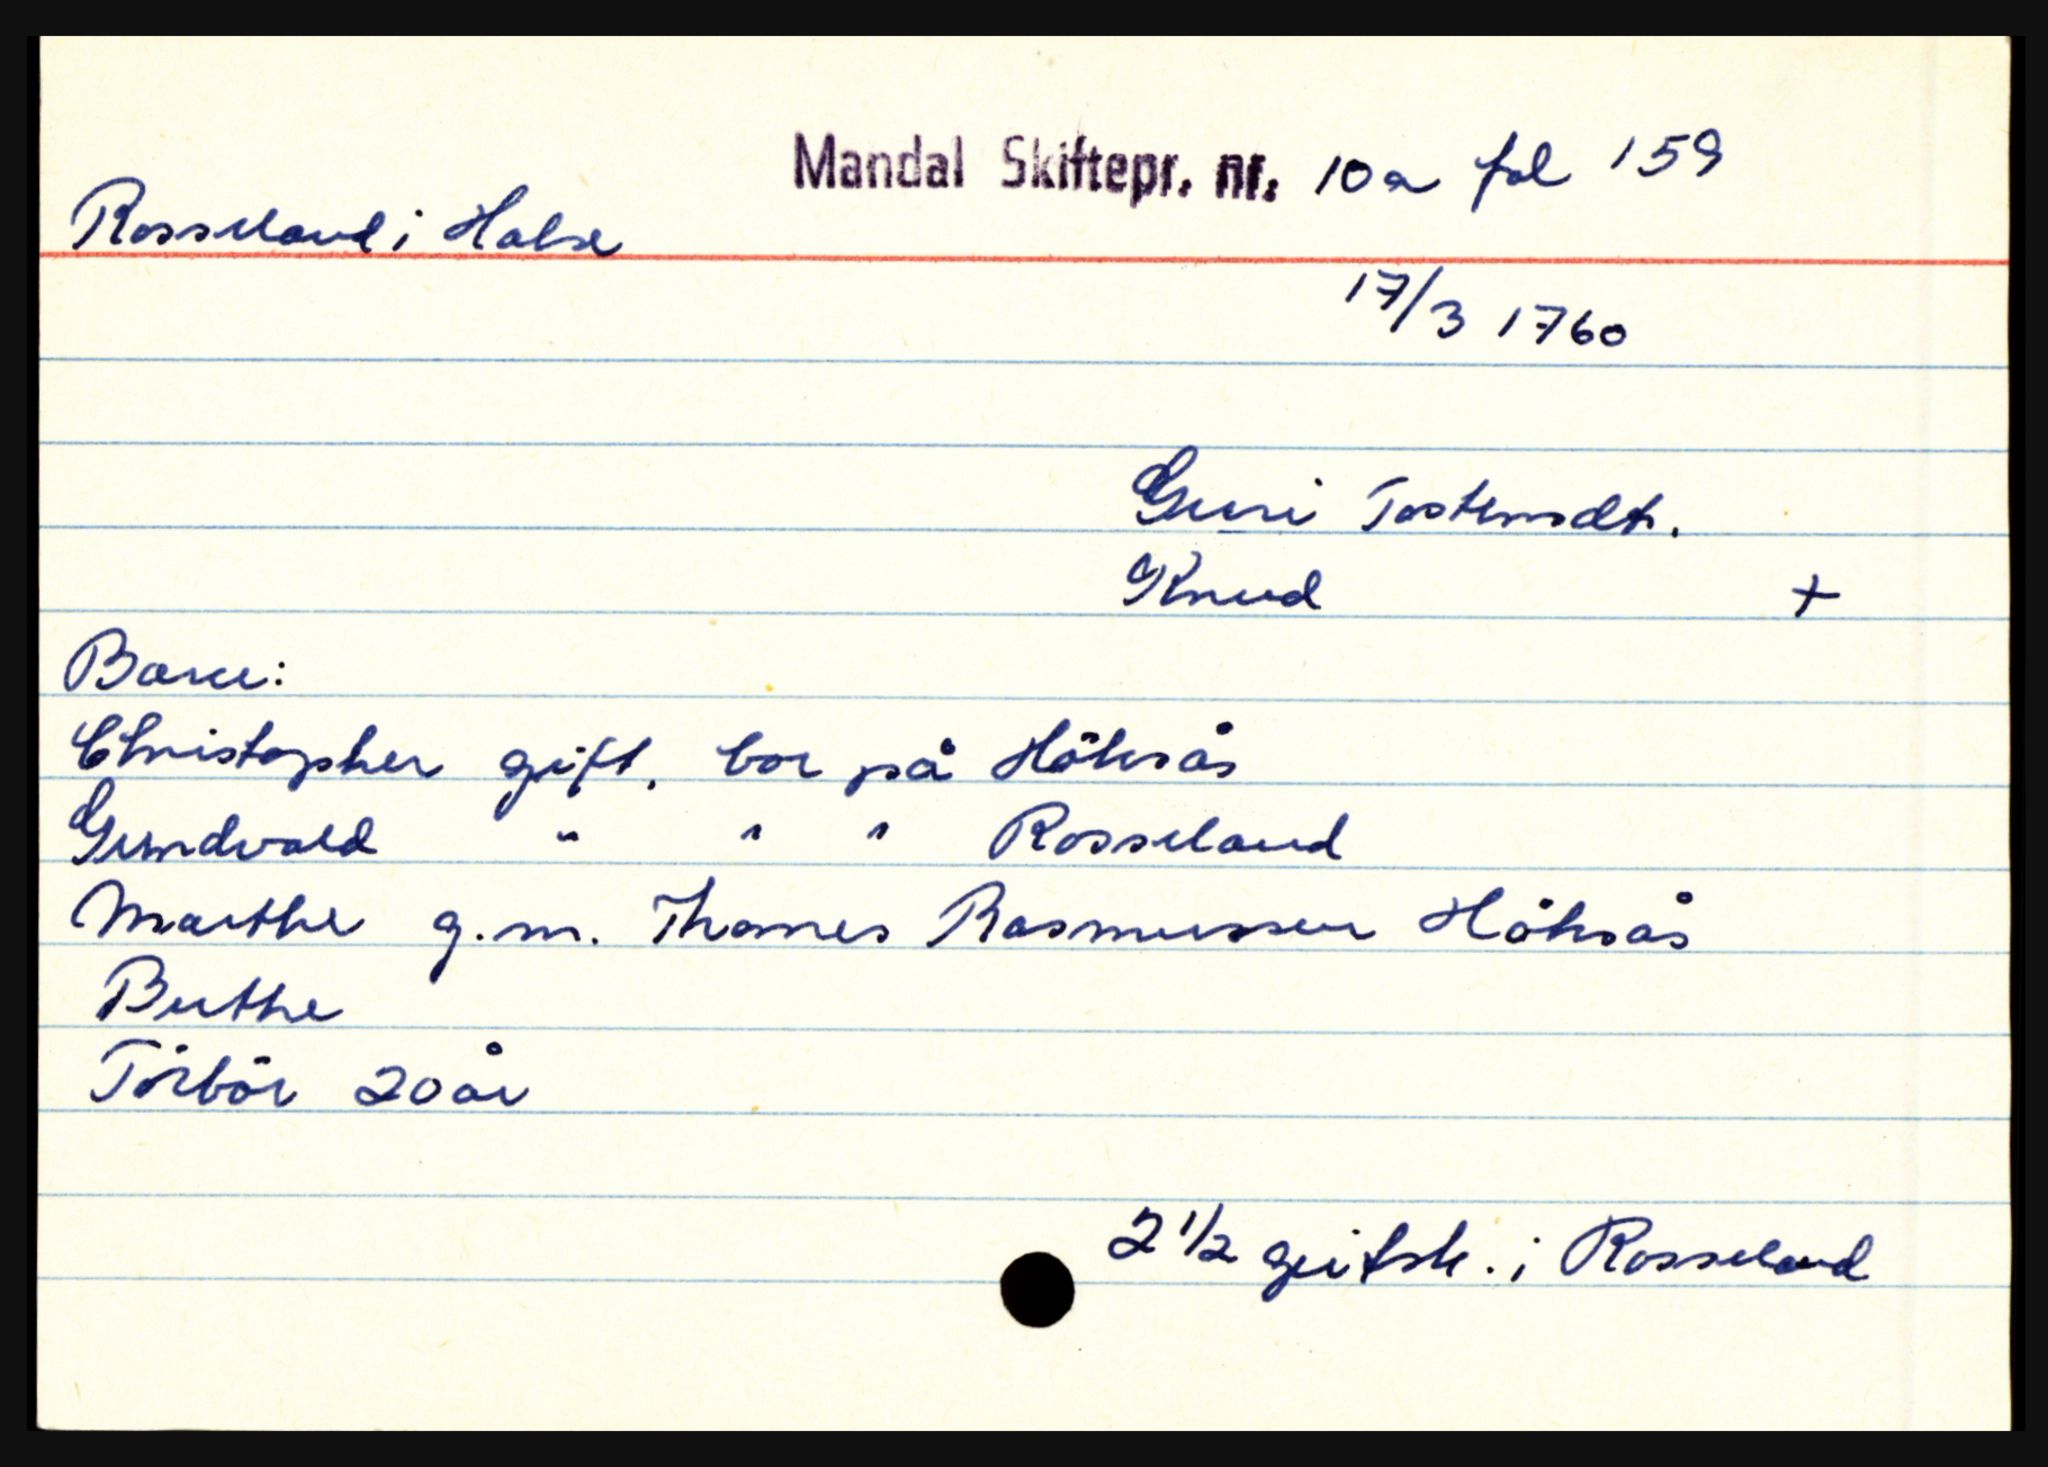 Mandal Skiftepr. nr. 10a fol 159
Rosseland i Halse
17/3 1760
Guri Tostensdtr.
Knud +
Barn:
Christopher gift, bor på Höksås
Gundvald " " " Rosseland
Marthe g.m. Thomes Rasmussen Höksås
Berthe
Törbör 20 år
2 1/2 geitsk. i Rosseland